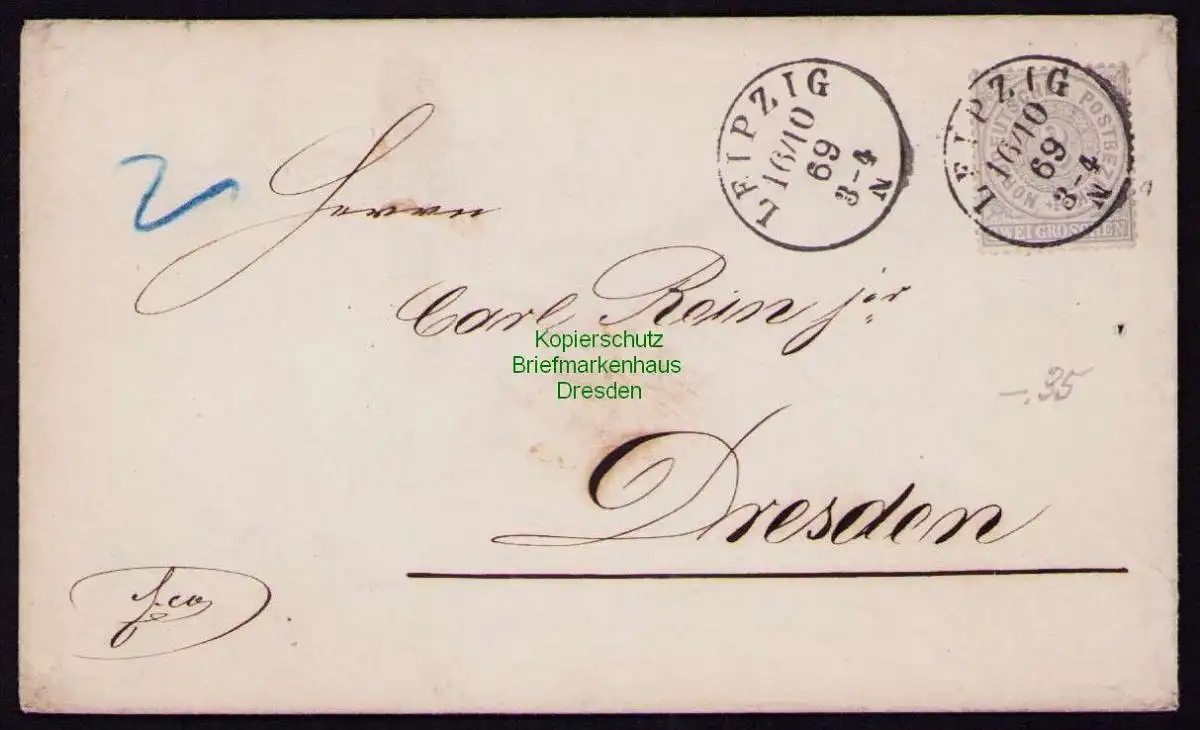 LEIPZIG
16/10
69
3-4
N
LEIPZIG
16/10
69
3-4
N
NORDDEUTSCHER POSTBEZIRK
ZWEI GROSCHEN
2
Herrn
Carl Rein jor
Kopierschutz
Briefmarkenhaus
Dresden
-.35
Dresden
fco